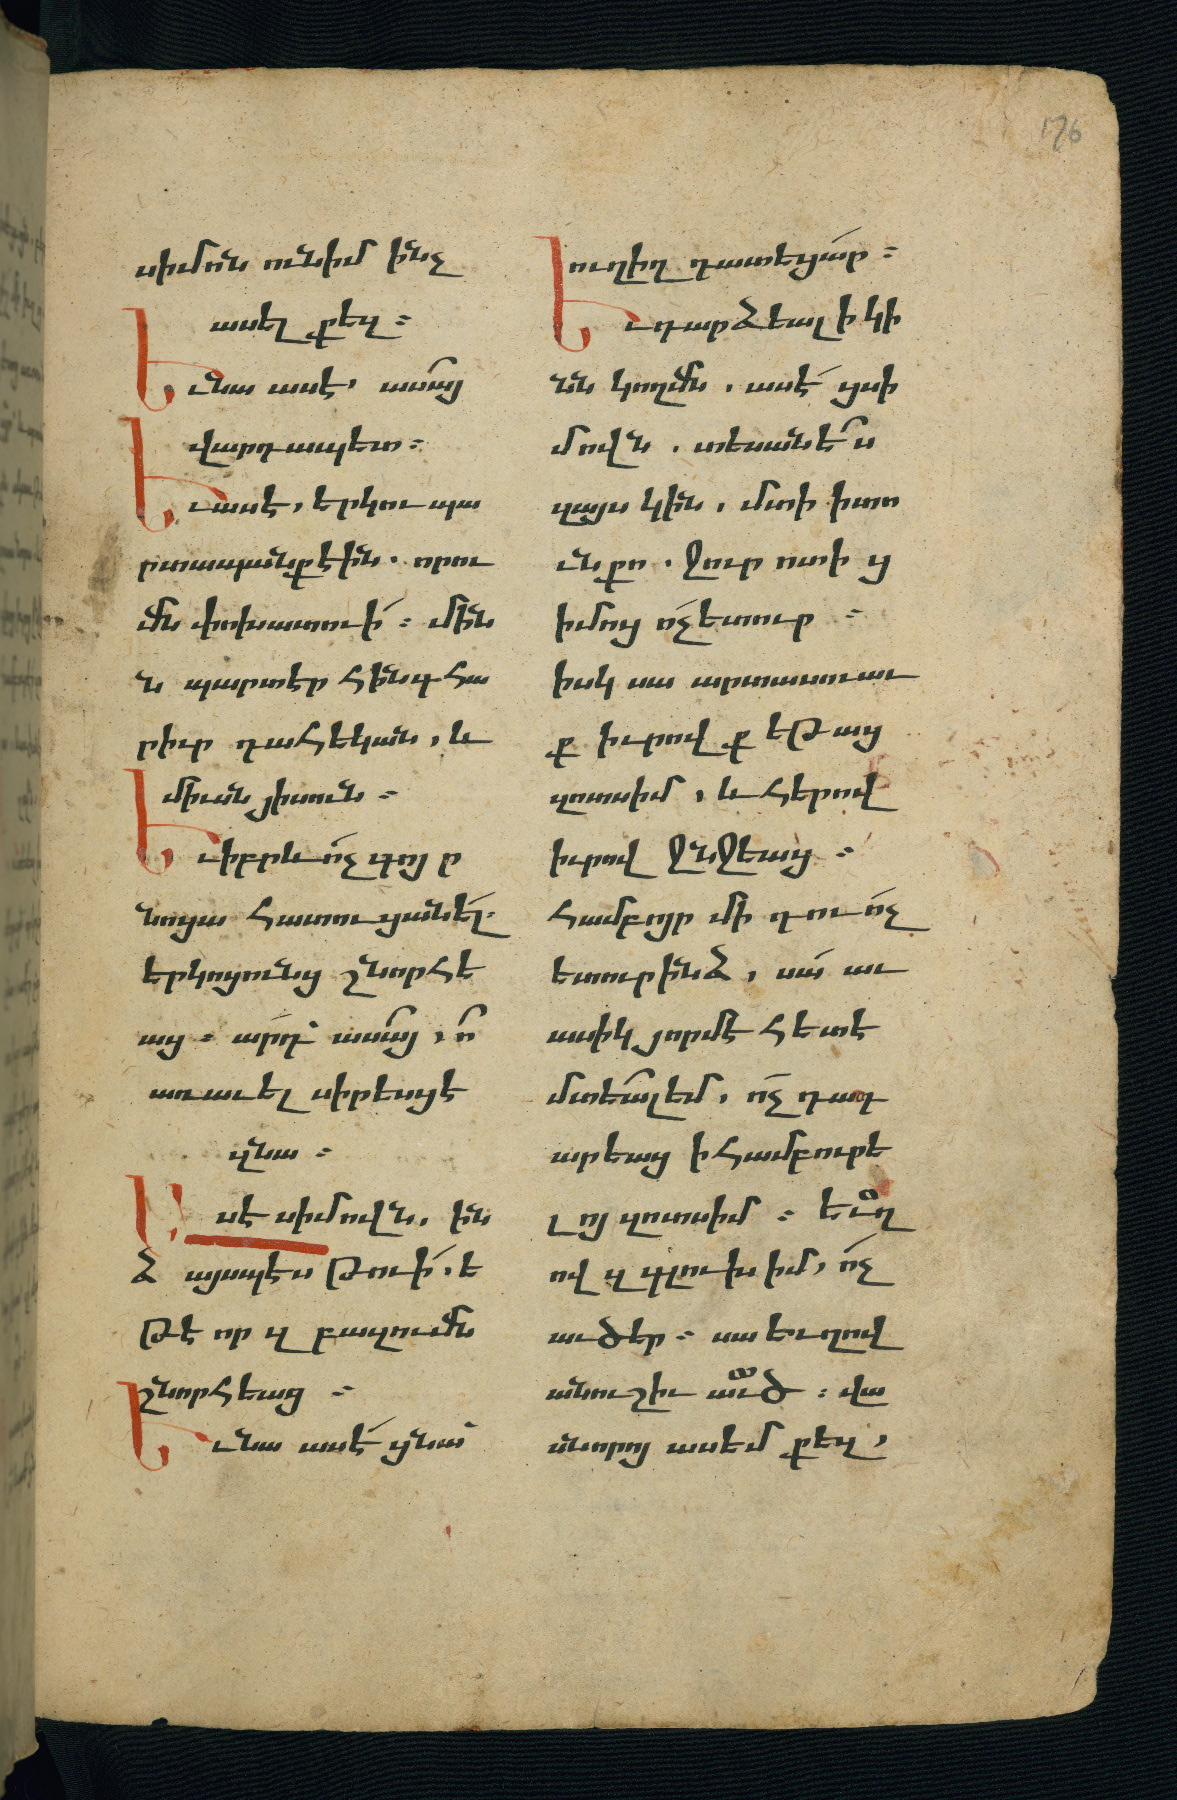 176
սիմոն ունիմ ինչ
ասել քեզ ։
Եւ նա ասէ, ասա՛ց
վարդապետ ։
Եւ ասէ, երկու պա
րտապանք էին. որու
մն փոխատուի ։ մինն
ն պարտէր հինգ հա
րիւր դահեկան, և
միւսն յիսուն ։
Եւ իբրև ոչ գոյ ր
նոցա հատուցանել.
երկոցունց շնորհե
աց ։ արդ՝ ասա՛ց, ո՞
առաւել սիրեսցե
զնա ։
Ասէ սիմովն. ին
ձ այսպէս թուի. ե
թէ որ զ բազումն
շնորհեաց ։
Եւ նա ասէ ցնա՝
ուղիղ դատեցար ։
Եւ դարձեալ ի կի
նն կողմն. ասէ ցսի
մովն. տեսանե՞ս
զայս կին. մտի ի տո
ւն քո. ջուր ոտի ց
իմոց ոչ ետուր ։
իսկ սա արտասուաւ
ք իւրով ք եթաց
զոտսիմ, և հերով
իւրով ջնջեաց ։
Համբոյր մի դու ոչ
ետուր ինձ, սա աւ
ասիկ յորմէ հետէ
մտեալեմ, ոչ դադ
արեաց ի համբուրե
լոյ զոտսիմ ։ եւղ
ով զ գլուխ իմ, ոչ
աւծեր ։ սա եւղով
անուշիւ աւծ ։ վա
սնորոյ ասեմ քեզ,